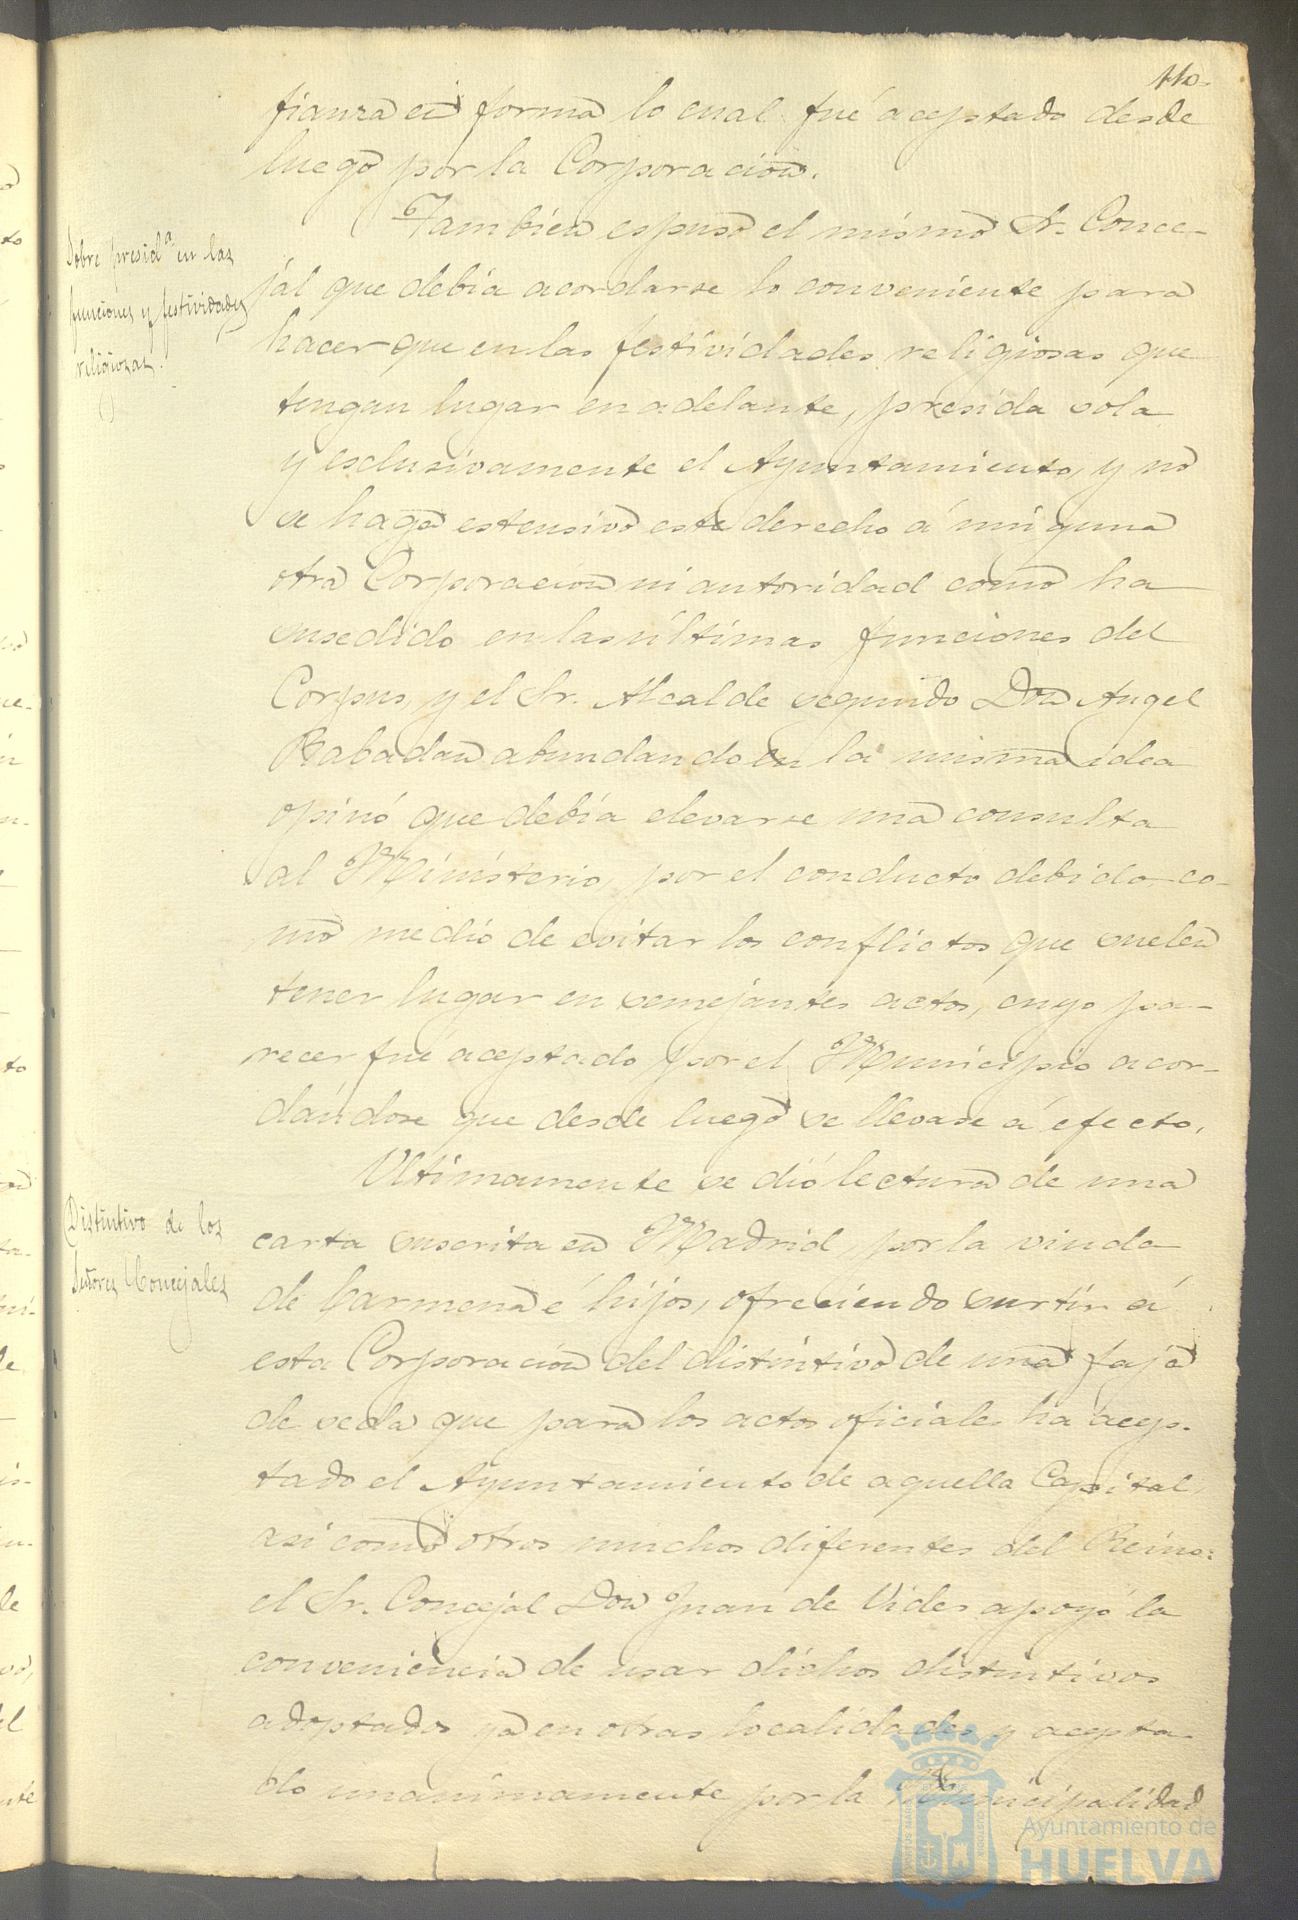 110.
fianza en forma lo cual fué aceptado desde
luego por la Corporacion.
Sobre presid.ª en las
funciones y festividades
religiosas.
Tambien espuso el mismo Sr. Conce-
jal que debia acordarse lo conveniente para
hacer que en las festividades religiosas que
tengan lugar en adelante, presida sola
y esclusivamente el Ayuntamiento, y no
se haga estensivo este derecho á ninguna
otra Corporacion ni autoridad como ha
susedido en las últimas funciones del
Corpus, y el Sr. Alcalde segundo Don Angel
Rabadan abundando en la misma idea
opinó que debia elevarse una consulta
al Ministerio por el conducto debido co-
mo medio de evitar los conflictos que suelen
tener lugar en semejantes actos, cuyo pa-
recer fué aceptado por el Municipio acor-
dándose que desde luego se llevase á efecto.
Distintivo de los
Señores Concejales
Ultimamente se dió lectura de una
carta suscrita en Madrid, por la viuda
de Carmena é hijos, ofreciendo surtir á
esta Corporacion del distintivo de una faja
de seda que para los actos oficiales ha acep-
tado el Ayuntamiento de aquella Capital,
asi como otros muchos diferentes del Reino:
el Sr. Concejal Don Juan de Vides apoyó la
conveniencia de usar dichos distintivos
adoptados ya en otras localidades y acepta-
do unanimamente por la Municipalidad
Ayuntamiento de
HUELVA